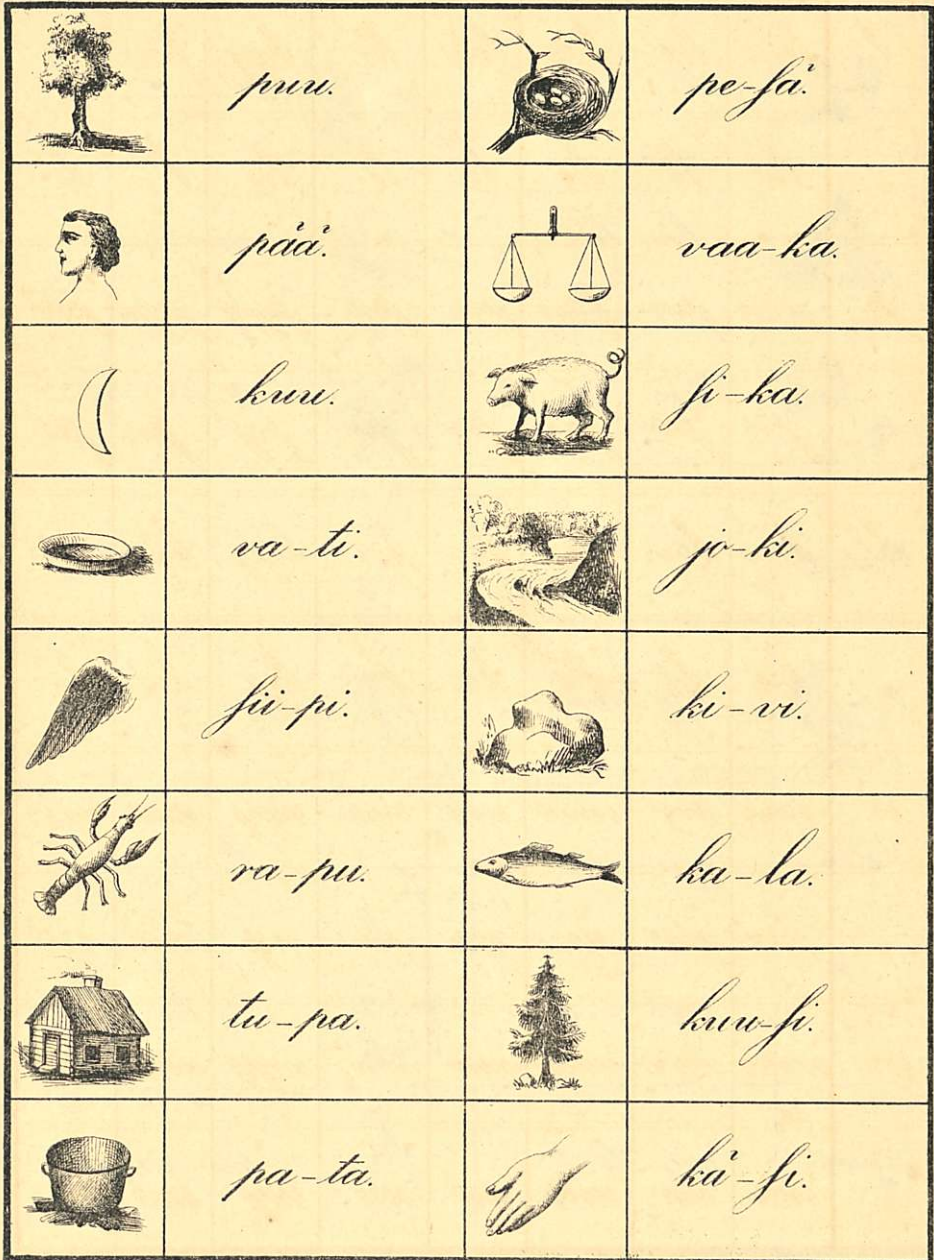 puu.
pe-ſä.
pää.
vaa-ka.
kuu.
ſi-ka.
va-ti.
jo-ki.
ſii-pi.
ki-vi.
ra-pu.
ka-la.
tu-pa.
kuu-ſi.
pa-ta.
kä-ſi.